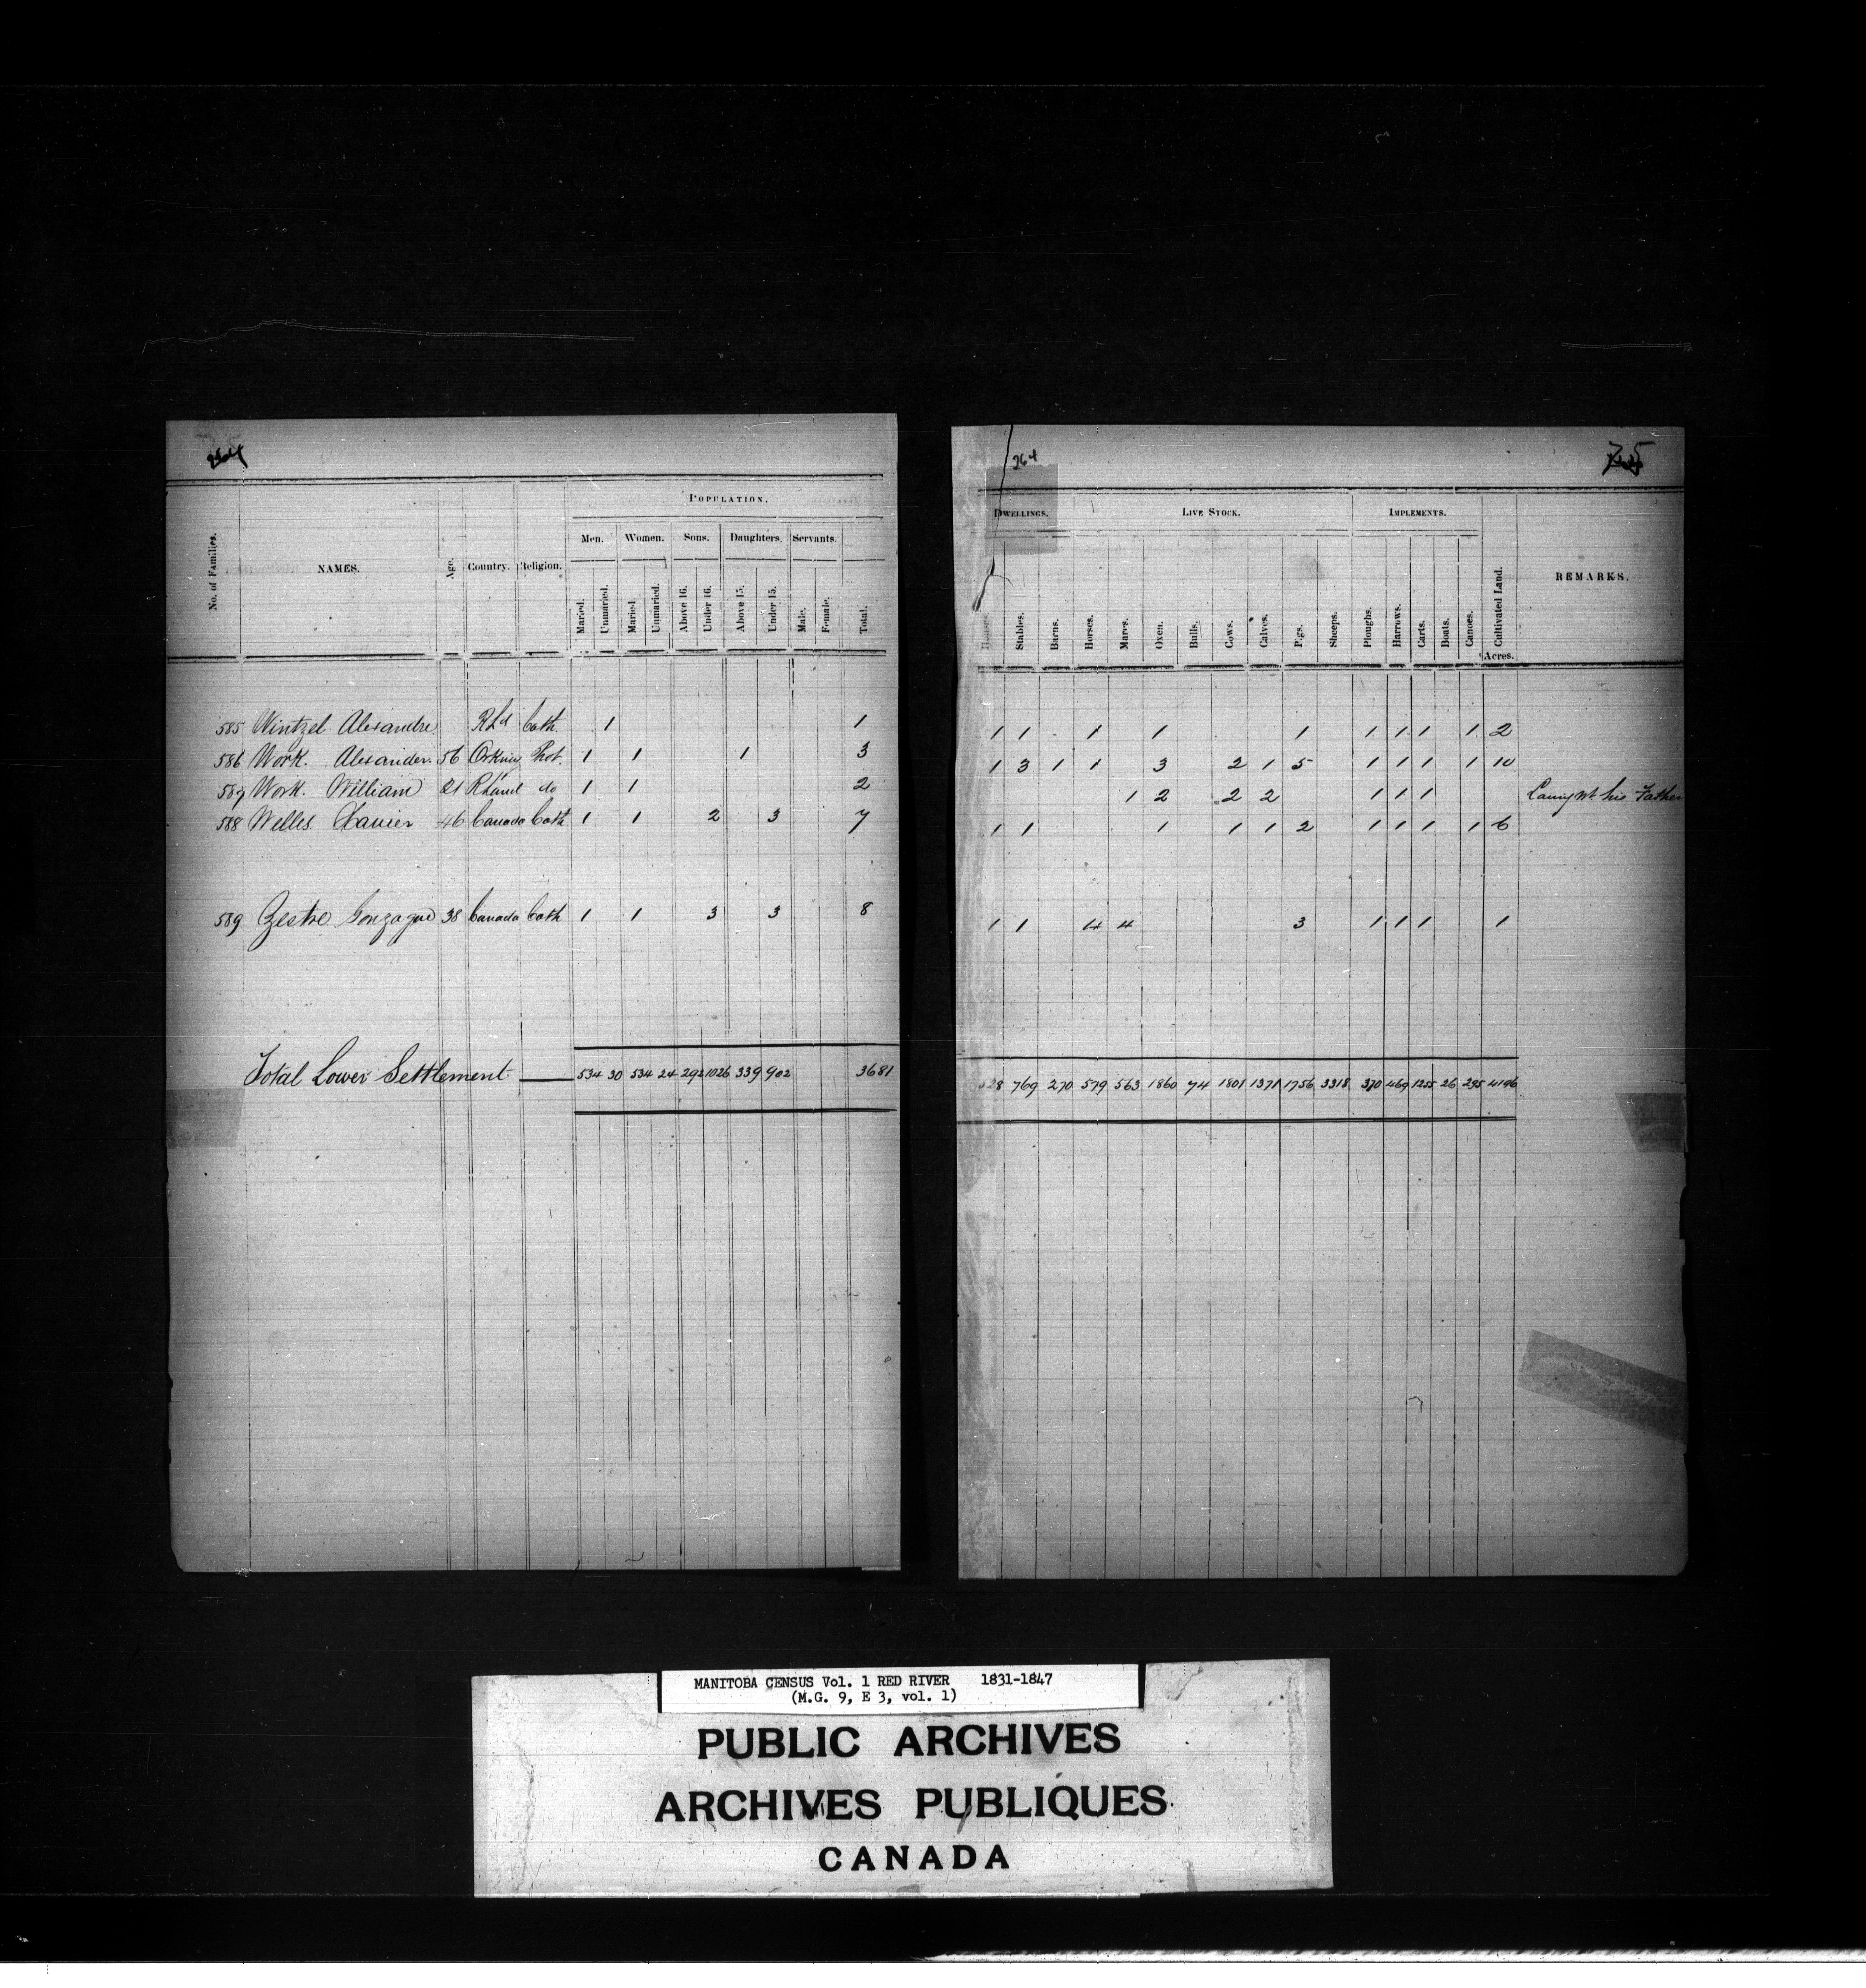 264
No. of Families. NAMES. Age. Country. Religion. POPULATION.
Men. Women. Sons. Daughters. Servants.
Married. Unmaried. Maried Unmaried. Above 16. Under 16. Above 15. Under 15. Male. Female. Total.
585 Wintzel Alexandre RLd Cath. 1 1
586 Work. Alexander. 56 Orkney Prot. 1 1 1 3
587 Work. William 21 RLand do 1 1 2
588 Welles Xavier 46 Canada Cath 1 1 2 3 7
589 Zestre Gonzague 38 Canada Cath 1 1 3 3 8
Total Lower Settlement 534 30 534 24 292 1026 339 902 3681
264
75
DWELLINGS. LIVE STOCK. IMPLEMENTS. Cultivated Land. REMARKS.
Stables. Barns. Horses. Mares. Oxen. Bulls. Cows. Calves. Pigs. Sheeps. Ploughs. Harrows. Carts. Boats. Canoes. Acres.
1 1 1 1 1 1 1 1 1 2
1 3 1 1 3 2 1 5 1 1 1 1 10
1 2 2 2 1 1 1 his Father
1 1 1 1 1 2 1 1 1 1 6
1 1 4 4 3 1 1 1 1
769 270 579 563 1860 74 1801 1371 1756 3318 370 469 1255 26 295 4196
MANITOBA CENSUS Vol. 1 RED RIVER 1831-1847
(M.G. 9, E 3, vol. 1)
PUBLIC ARCHIVES
ARCHIVES PUBLIQUES
CANADA